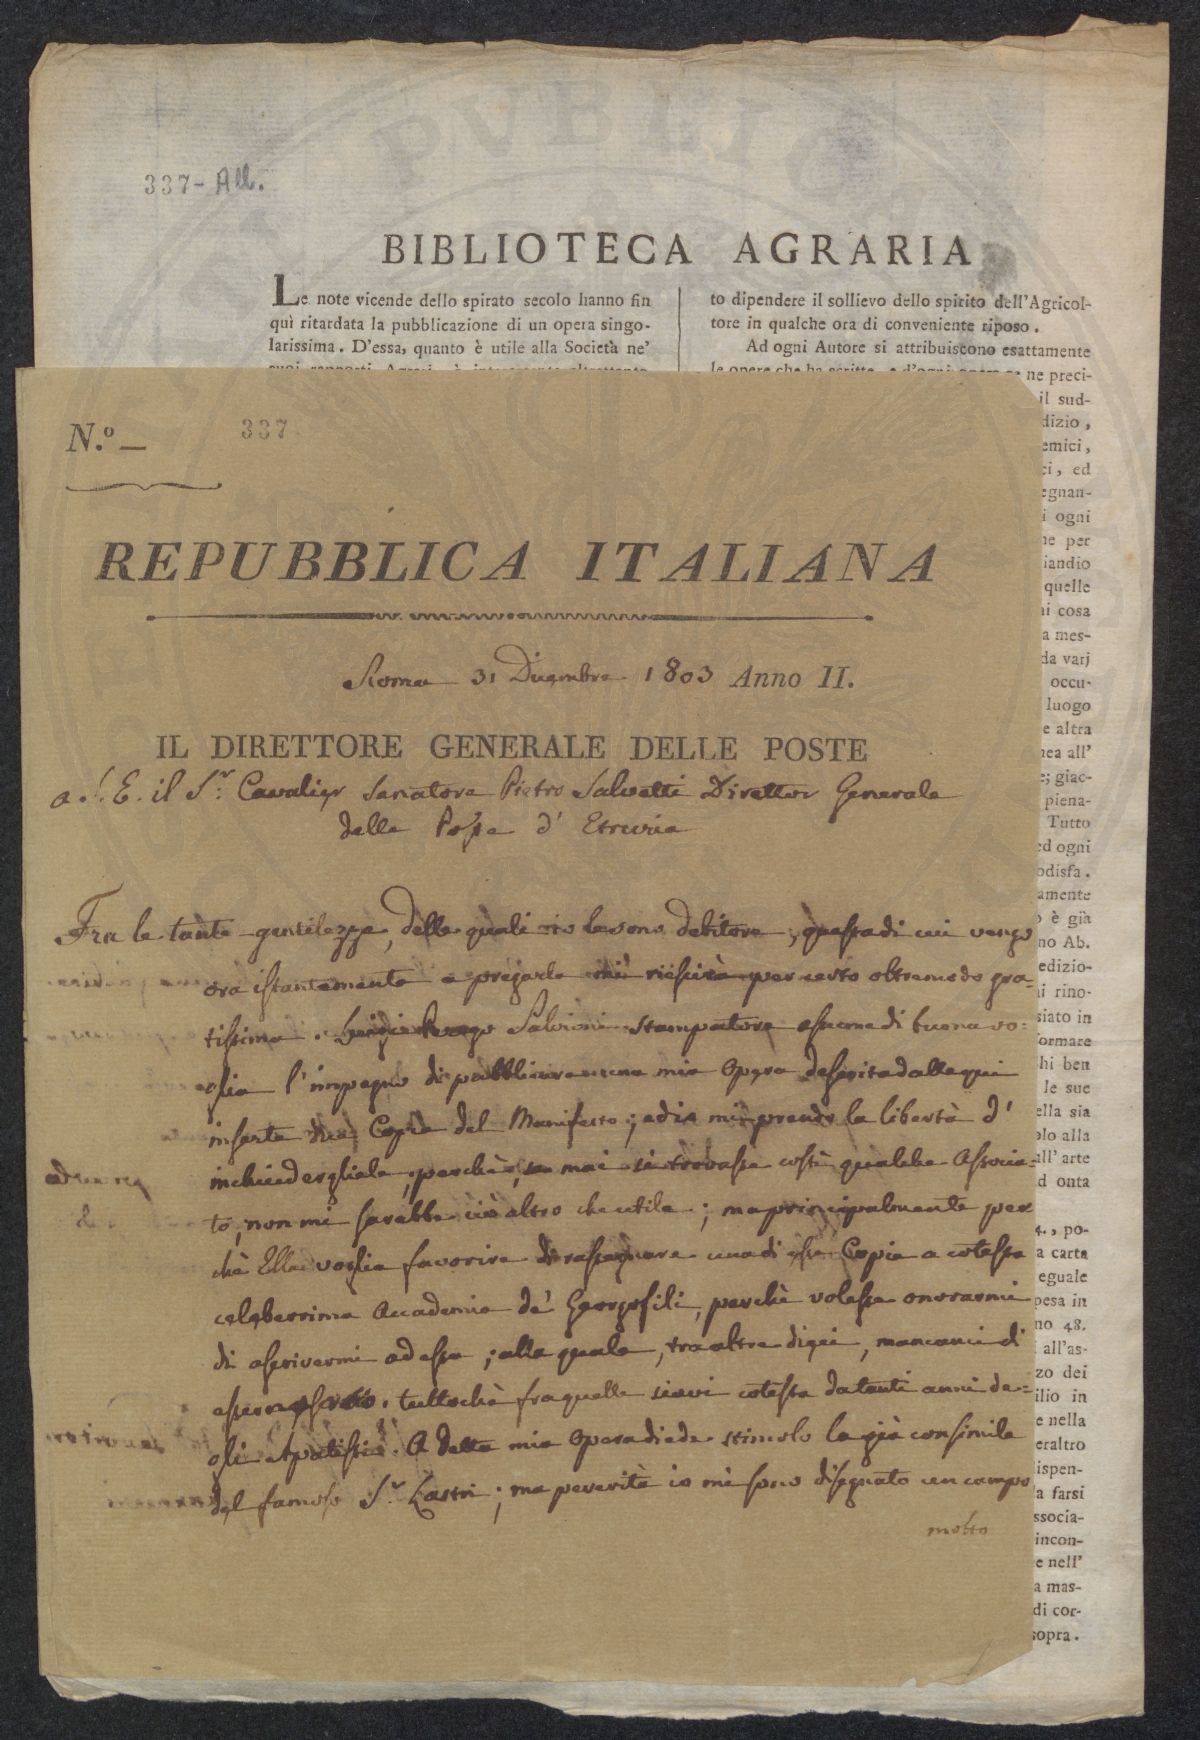 337- All.
BIBLIOTECA AGRARIA
Le note vicende dello spirato secolo hanno fin
quì ritardata la pubblicazione di un opera singo-
larissima. D'essa, quanto è utile alla Società ne'
to dipendere il sollievo dello spirito dell'Agricol-
tore in qualche ora di conveniente riposo.
Ad ogni Autore si attribuiscono esattamente
le opere che ha scritte, e d'ogni opera se ne preci-
il sud-
dizio,
emici,
ci, ed
egnan-
i ogni
ne per
iandio
quelle
ni cosa
a mes-
da varj
occu-
luogo
e altra
nea all'
e; giac-
piena-
Tutto
ed ogni
odisfa.
amente
è già
no Ab.
edizio-
ai rino-
siato in
formare
hi ben
le sue
ella sia
olo alla
all'arte
d onta
4., po-
a carta
eguale
pesa in
no 48.
all'as-
zo dei
ilio in
e nella
eraltro
ispen-
a farsi
ssocia-
incon-
e nell'
a mas-
di cor-
sopra.
N.º — 337
REPUBBLICA ITALIANA
Roma 31 Dicembre 1803 Anno II.
IL DIRETTORE GENERALE DELLE POSTE
a S. E. il Sr. Cavalier Senatore Pietro Salvetti Direttor Generale
delle Poste d'Etruria
Fra le tante gentilezze, delle quali io le sono debitore, questa di cui vengo
ora istantemente a pregarla mi riescirà per certo oltremodo gra-
tissima. Salvioni stampatore assume di buona vo-
glia l'impegno di pubblicare una mia Opera descritta dalle qui
inserte due Copie del Manifesto; ed io mi prendo la libertà d'
inchiudergliele, perchè, se mai si trovasse costì qualche Associa-
to, non mi sarebbe ciò altro che utile; ma principalmente per-
chè Ella voglia favorire di rassegnare una di esse Copie a cotesta
celeberrima Accademia de' Georgofili, perchè volesse onorarmi
di ascrivermi ad essa; alla quale, tra altre dieci, mancami di
essere ascritto, tuttochè fra quelle siavi cotesta da tanti anni de-
gli Apatisti. A detta mia Opera diede stimolo la già consimile
del famoso Sr. Lastri; ma per verità io mi sono disegnato un campo
molto